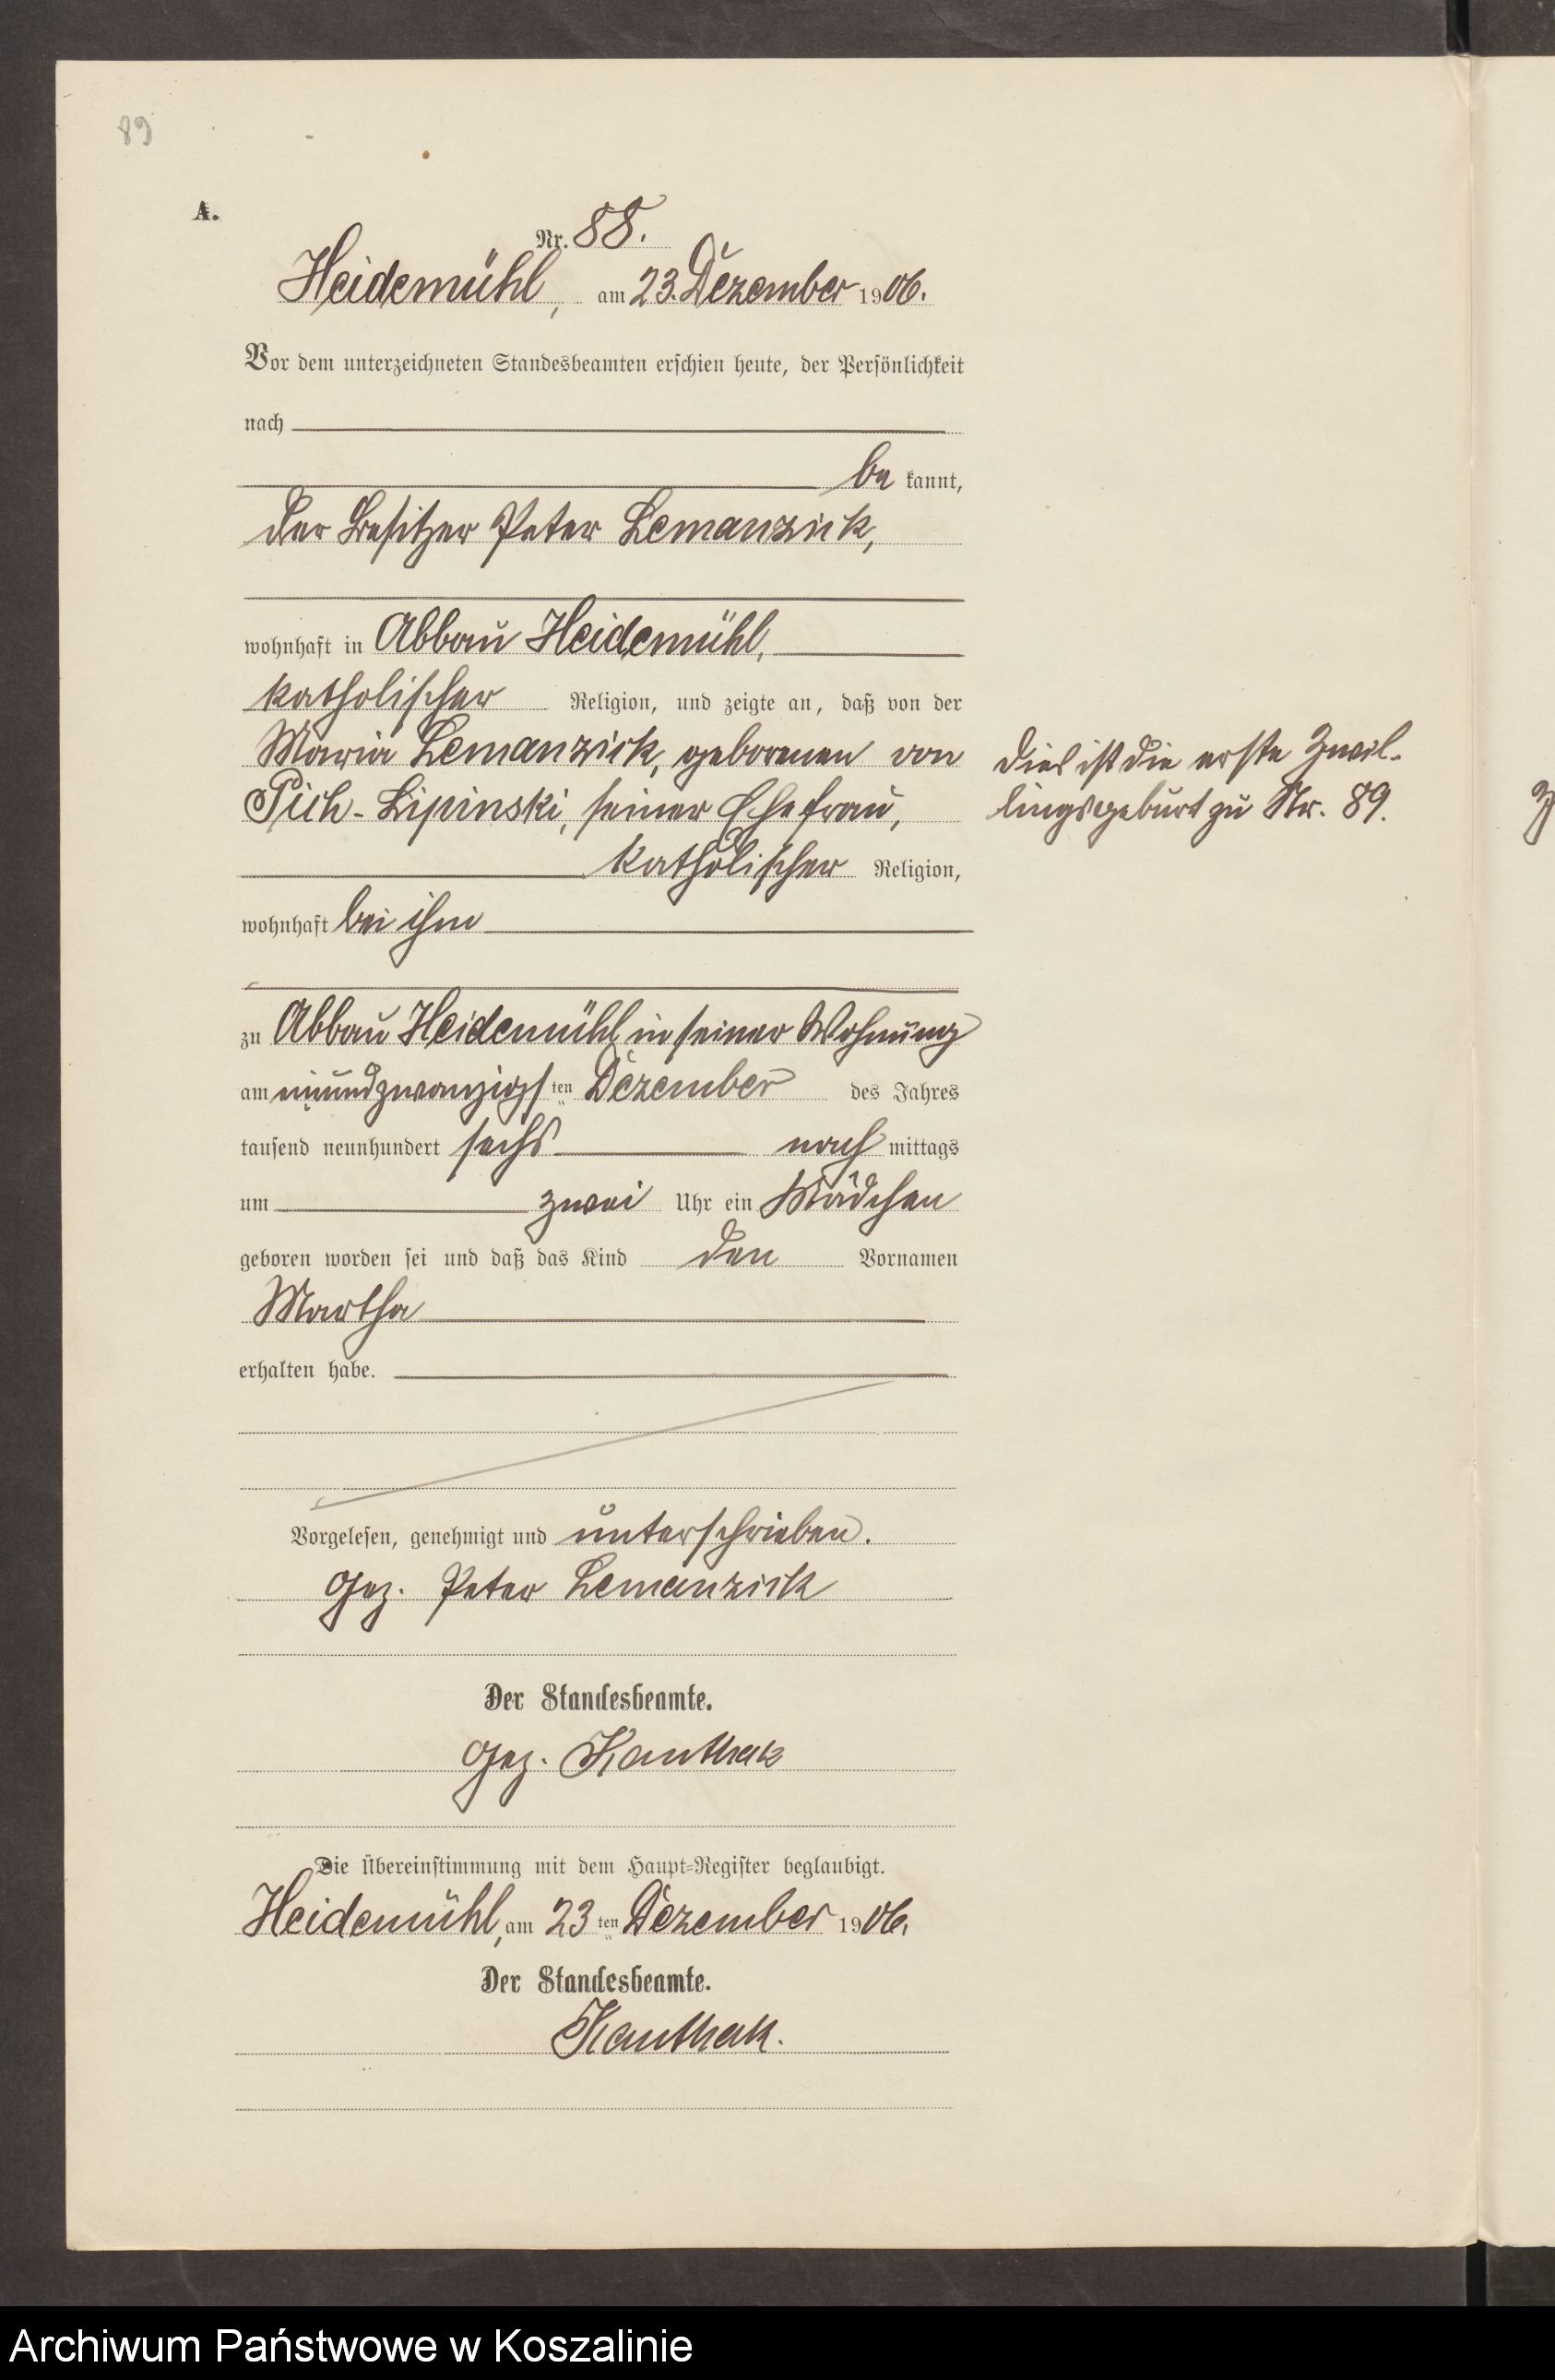 89
A.
Nr. 88.
Heidemühl, am 23. Dezember 1906.
Vor dem unterzeichneten Standesbeamten erschien heute, der Persönlichkeit
nach
be kannt,
der Besitzer Peter Lemanzick,
wohnhaft in Abbau Heidemühl,
katholischer Religion, und zeigte an, daß von der
Maria Lemanzick, geborenen von
Pich-Lipinski, seiner Ehefrau,
katholischer Religion,
wohnhaft bei ihm
zu Abbau Heidemühl, in seiner Wohnung
am einundzwanzigsten Dezember des Jahres
tausend neunhundert sechs nach mittags
um zwei Uhr ein Mädchen
geboren worden sei und daß das Kind den Vornamen
Martha
erhalten habe.
Vorgelesen, genehmigt und unterschrieben.
gez. Peter Lemanzick
Der Standesbeamte.
gez. Kanthak
Die Übereinstimmung mit dem Haupt=Register beglaubigt.
Heidemühl, am 23 ten Dezember 1906.
Der Standesbeamte.
Kanthak.
Dies ist die erste Zwil-
lingsgeburt zu Nr. 89.
Archiwum Państwowe w Koszalinie